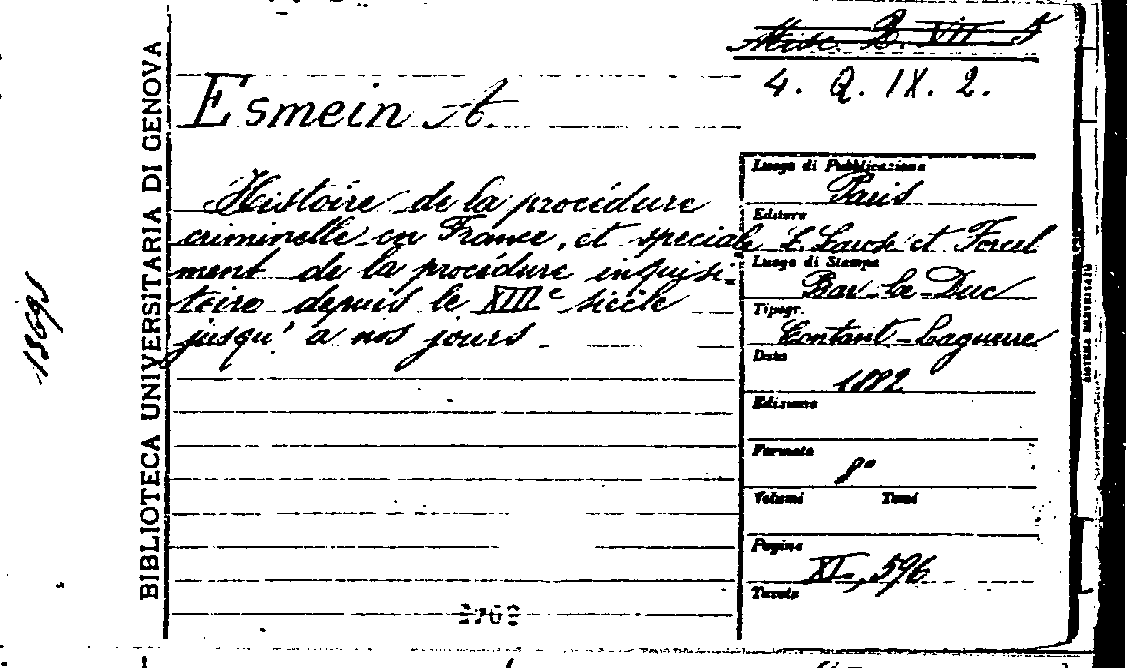 Misc. B. VII. 5
4. Q. IX. 2.
Esmein A.
Histoire de la procédure
criminelle en France, et speciale
ment de la procédure inquisi-
toire depuis le XIIIe siècle
jusqu'à nos jours.
Luogo di Pubblicazione
Paris
Editore
L. Larose et Forcel
Luogo di Stampa
Bar-le-Duc
Tipogr.
Contant-Laguerre
Data
1882
Edizione
Formato
8°
Volumi Tomi
Pagine
XI, 596
Tavole
BIBLIOTECA UNIVERSITARIA DI GENOVA